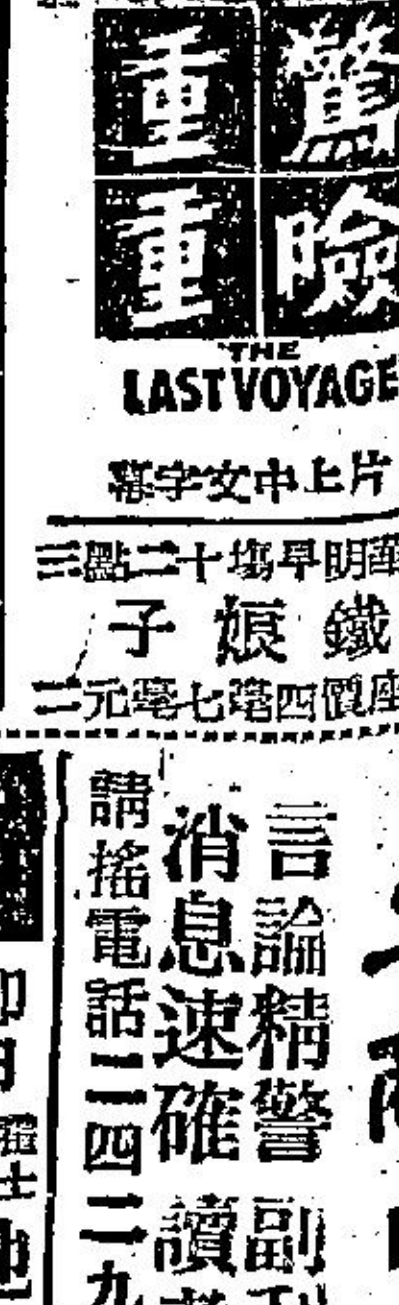 驚險
重重
THE
LAST VOYAGE
片上中文字幕
華明早場十二點三
鐵娘子
座價四毫七毫元二
言論精警 副刊
消息速確 讀者
請搖電話二一四二九